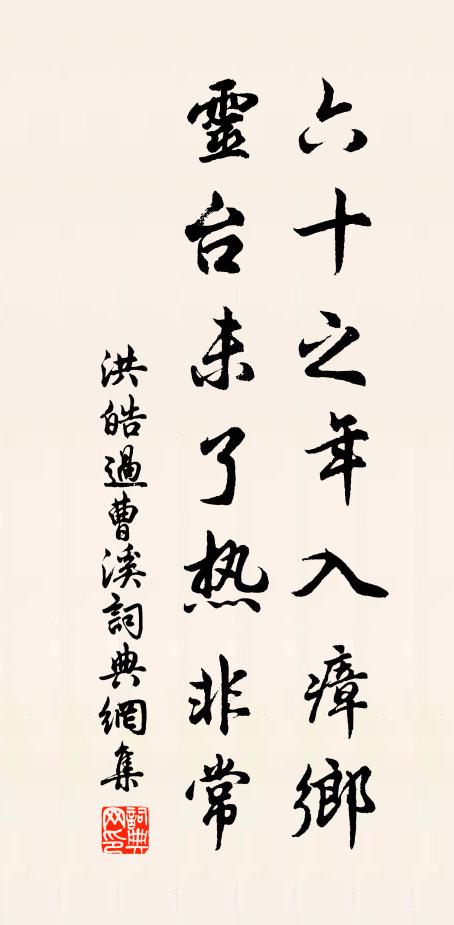 六十之年入瘴鄉
靈台未了热非常
洪皓過曹溪詞典網集
詞典网印